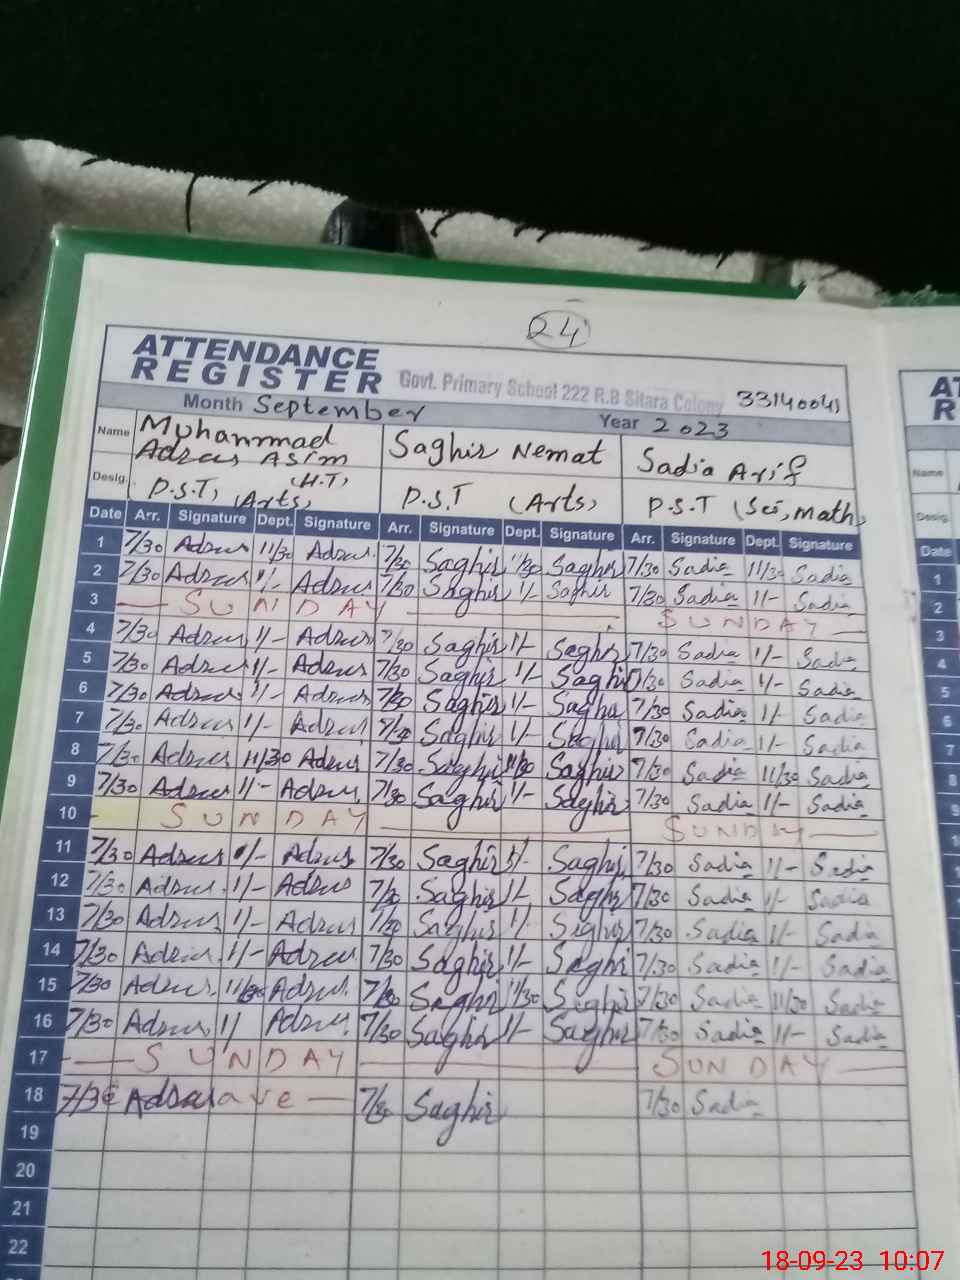 24
ATTENDANCE
REGISTER
Govt. Primary School 222 R.B Sitara Colony 33140041
Month September Year 2023
Name Muhammad Adrus Asim (H.T) Saghir Nemat Sadia Arif
Desig. P.S.T, (Arts) P.S.T (Arts) P.S.T (Sci, math)
Date Arr. Signature Dept. Signature Arr. Signature Dept. Signature Arr. Signature Dept. Signature
1 7/30 Adrus 11/30 Adrus 7/30 Saghir 11/30 Saghir 7/30 Sadia 11/30 Sadia
2 7/30 Adrus 1/- Adrus 7/30 Saghir 1/- Saghir 7/30 Sadia 1/- Sadia
3 SUNDAY SUNDAY
4 7/30 Adrus 1/- Adrus 7/30 Saghir 1/- Saghir 7/30 Sadia 1/- Sadia
5 7/30 Adrus 1/- Adrus 7/30 Saghir 1/- Saghir 7/30 Sadia 1/- Sadia
6 7/30 Adrus 1/- Adrus 7/30 Saghir 1/- Saghir 7/30 Sadia 1/- Sadia
7 7/30 Adrus 1/- Adrus 7/30 Saghir 1/- Saghir 7/30 Sadia 1/- Sadia
8 7/30 Adrus 11/30 Adrus 7/30 Saghir 11/30 Saghir 7/30 Sadia 11/30 Sadia
9 7/30 Adrus 1/- Adrus 7/30 Saghir 1/- Saghir 7/30 Sadia 1/- Sadia
10 SUNDAY SUNDAY
11 7/30 Adrus 1/- Adrus 7/30 Saghir 1/- Saghir 7/30 Sadia 1/- Sadia
12 7/30 Adrus 1/- Adrus 7/30 Saghir 1/- Saghir 7/30 Sadia 1/- Sadia
13 7/30 Adrus 1/- Adrus 7/30 Saghir 1/- Saghir 7/30 Sadia 1/- Sadia
14 7/30 Adrus 1/- Adrus 7/30 Saghir 1/- Saghir 7/30 Sadia 1/- Sadia
15 7/30 Adrus 11/30 Adrus 7/30 Saghir 11/30 Saghir 7/30 Sadia 11/30 Sadia
16 7/30 Adrus 1/ Adrus 7/30 Saghir 1/- Saghir 7/30 Sadia 1/- Sadia
17 SUNDAY SUNDAY
18 7/30 Adrus 7/30 Saghir 7/30 Sadia
19
20
21
22
Name
Desig.
Date
1
2
3
4
5
6
7
8
9
18-09-23 10:07